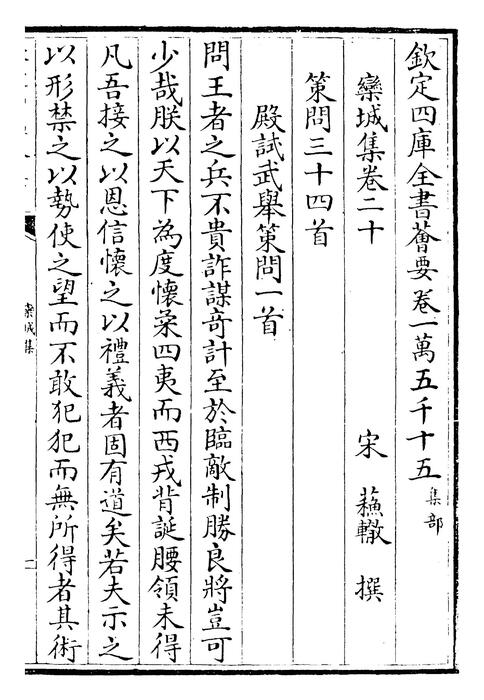 欽定四庫全書薈要卷一萬五千十五 集部
欒城集卷二十 宋 蘇轍 撰
策問三十四首
殿試武舉策問一首
問王者之兵不貴詐謀竒計至於臨敵制勝良將豈可
少哉朕以天下為度懷柔四夷而西戎背誕腰領未得
凡吾接之以恩信懷之以禮義者固有道矣若夫示之
以形禁之以勢使之望而不敢犯犯而無所得者其術
欒城集